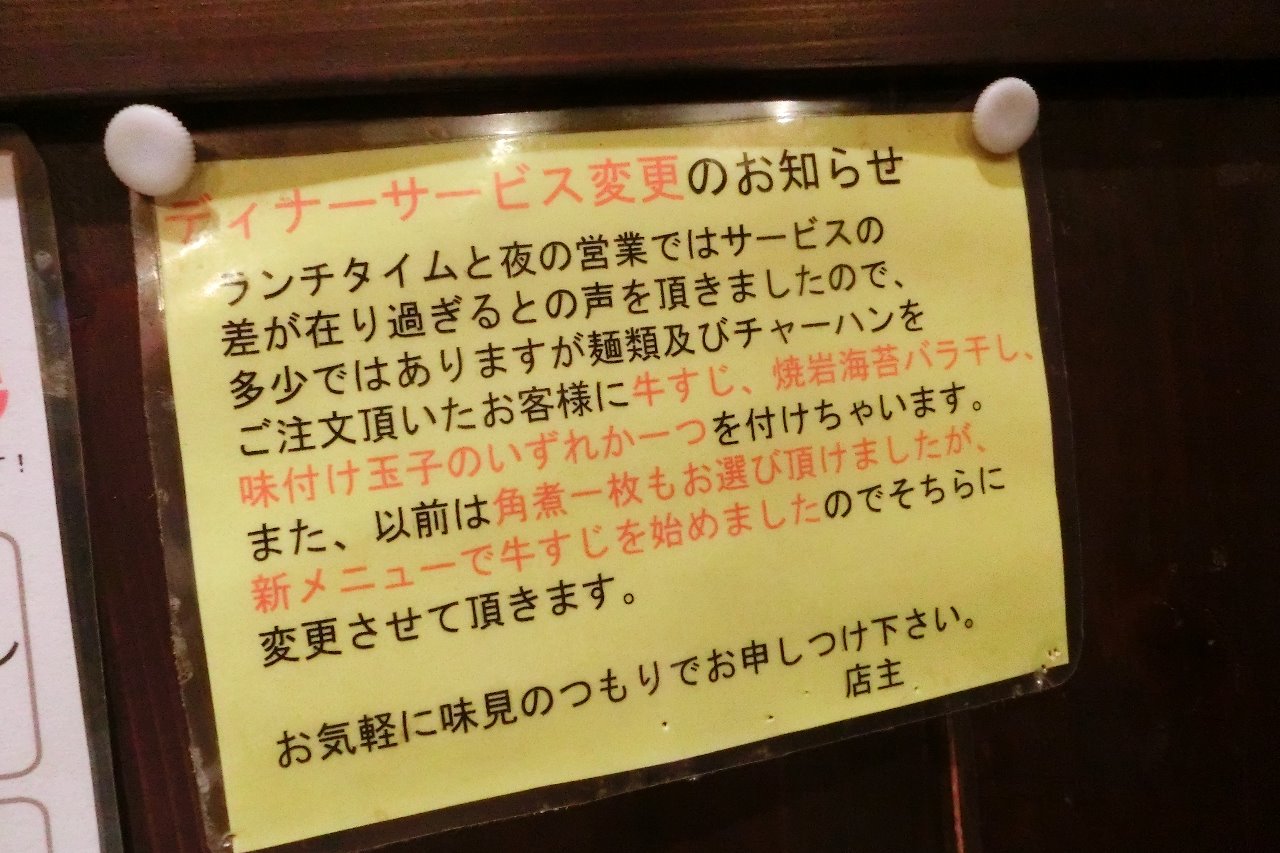 ディナーサービス変更のお知らせ
ランチタイムと夜の営業ではサービスの
差が在り過ぎるとの声を頂きましたので、
多少ではありますが麺類及びチャーハンを
ご注文頂いたお客様に牛すじ、焼岩海苔バラ干し、
味付け玉子のいずれか一つを付けちゃいます。
また、以前は角煮一枚もお選び頂けましたが、
新メニューで牛すじを始めましたのでそちらに
変更させて頂きます。
お気軽に味見のつもりでお申しつけ下さい。
店主